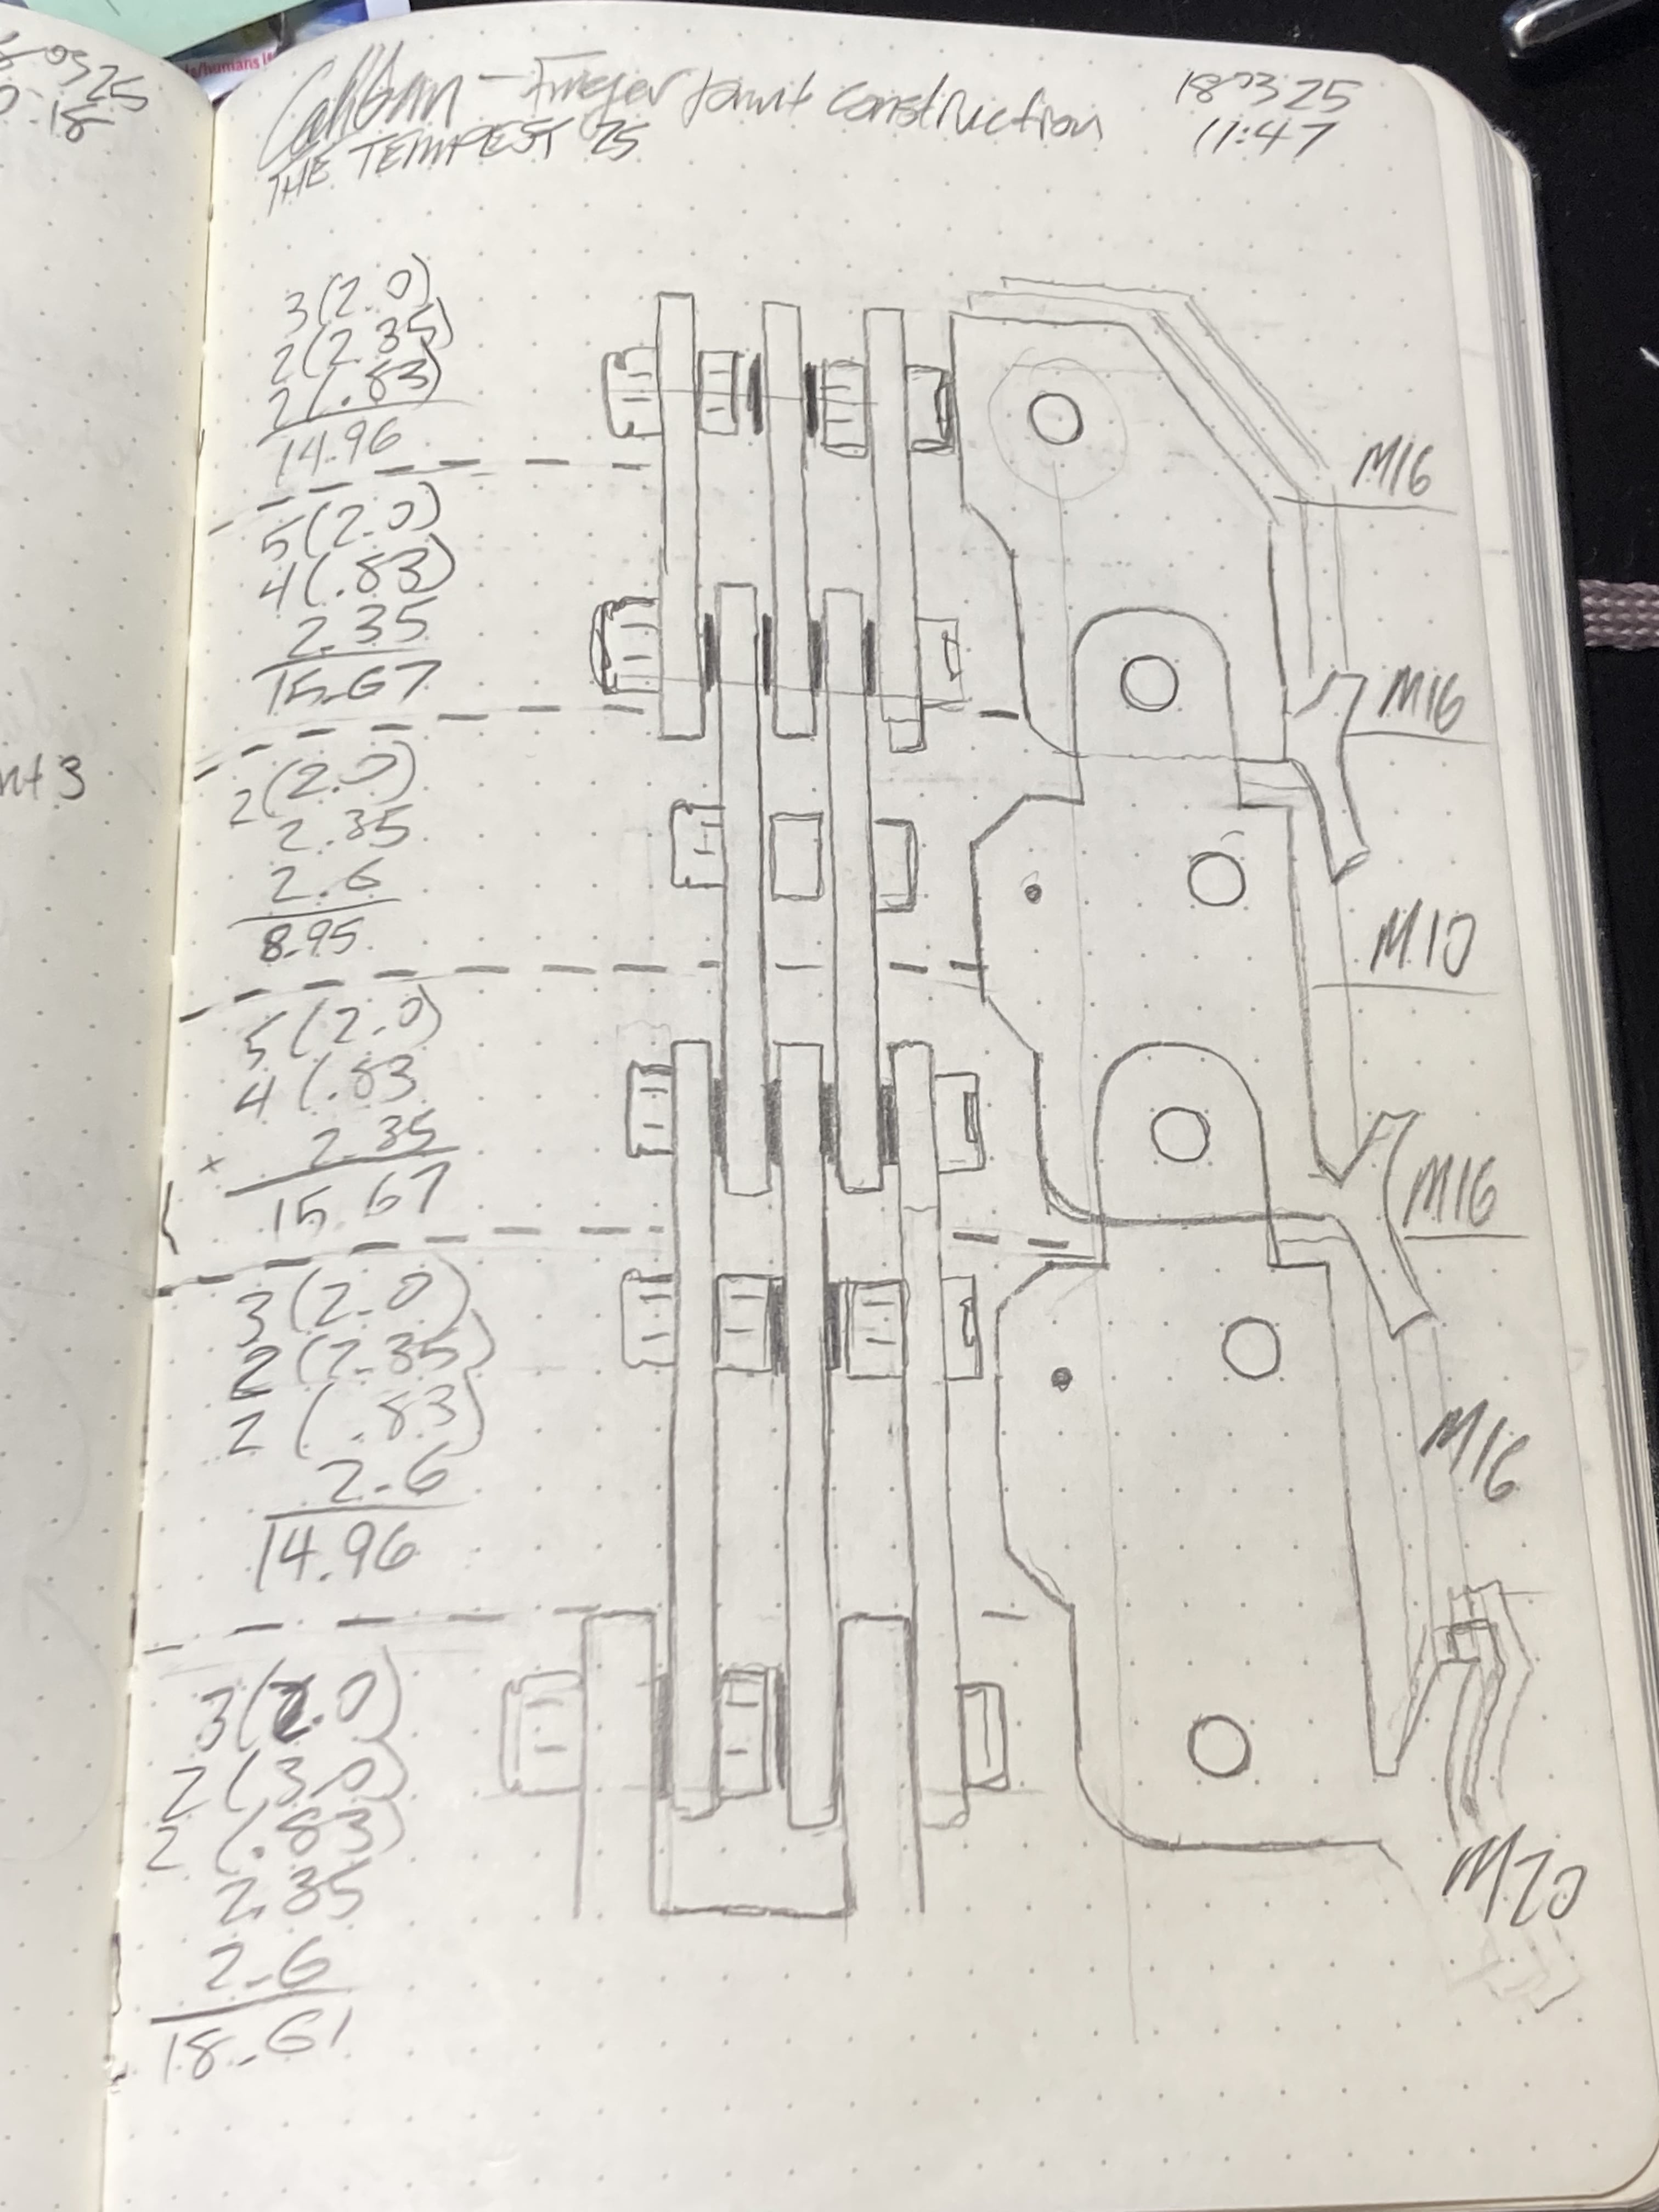 Caliban - Finger Joint construction
THE TEMPEST 25
180325
11:47
3(2.0)
2(2.35)
2(.83)
14.96
5(2.0)
4(.83)
2.35
15.67
2(2.0)
2.35
2.6
8.95
5(2.0)
4(.83
2.35
15.67
3(2.0)
2(2.35)
2(.83)
2.6
14.96
3(2.0)
2(3.0)
2(.83)
2.35
2.6
18.61
M16
M16
M10
M16
M16
M20
nt 3
0325
18
s/humans is